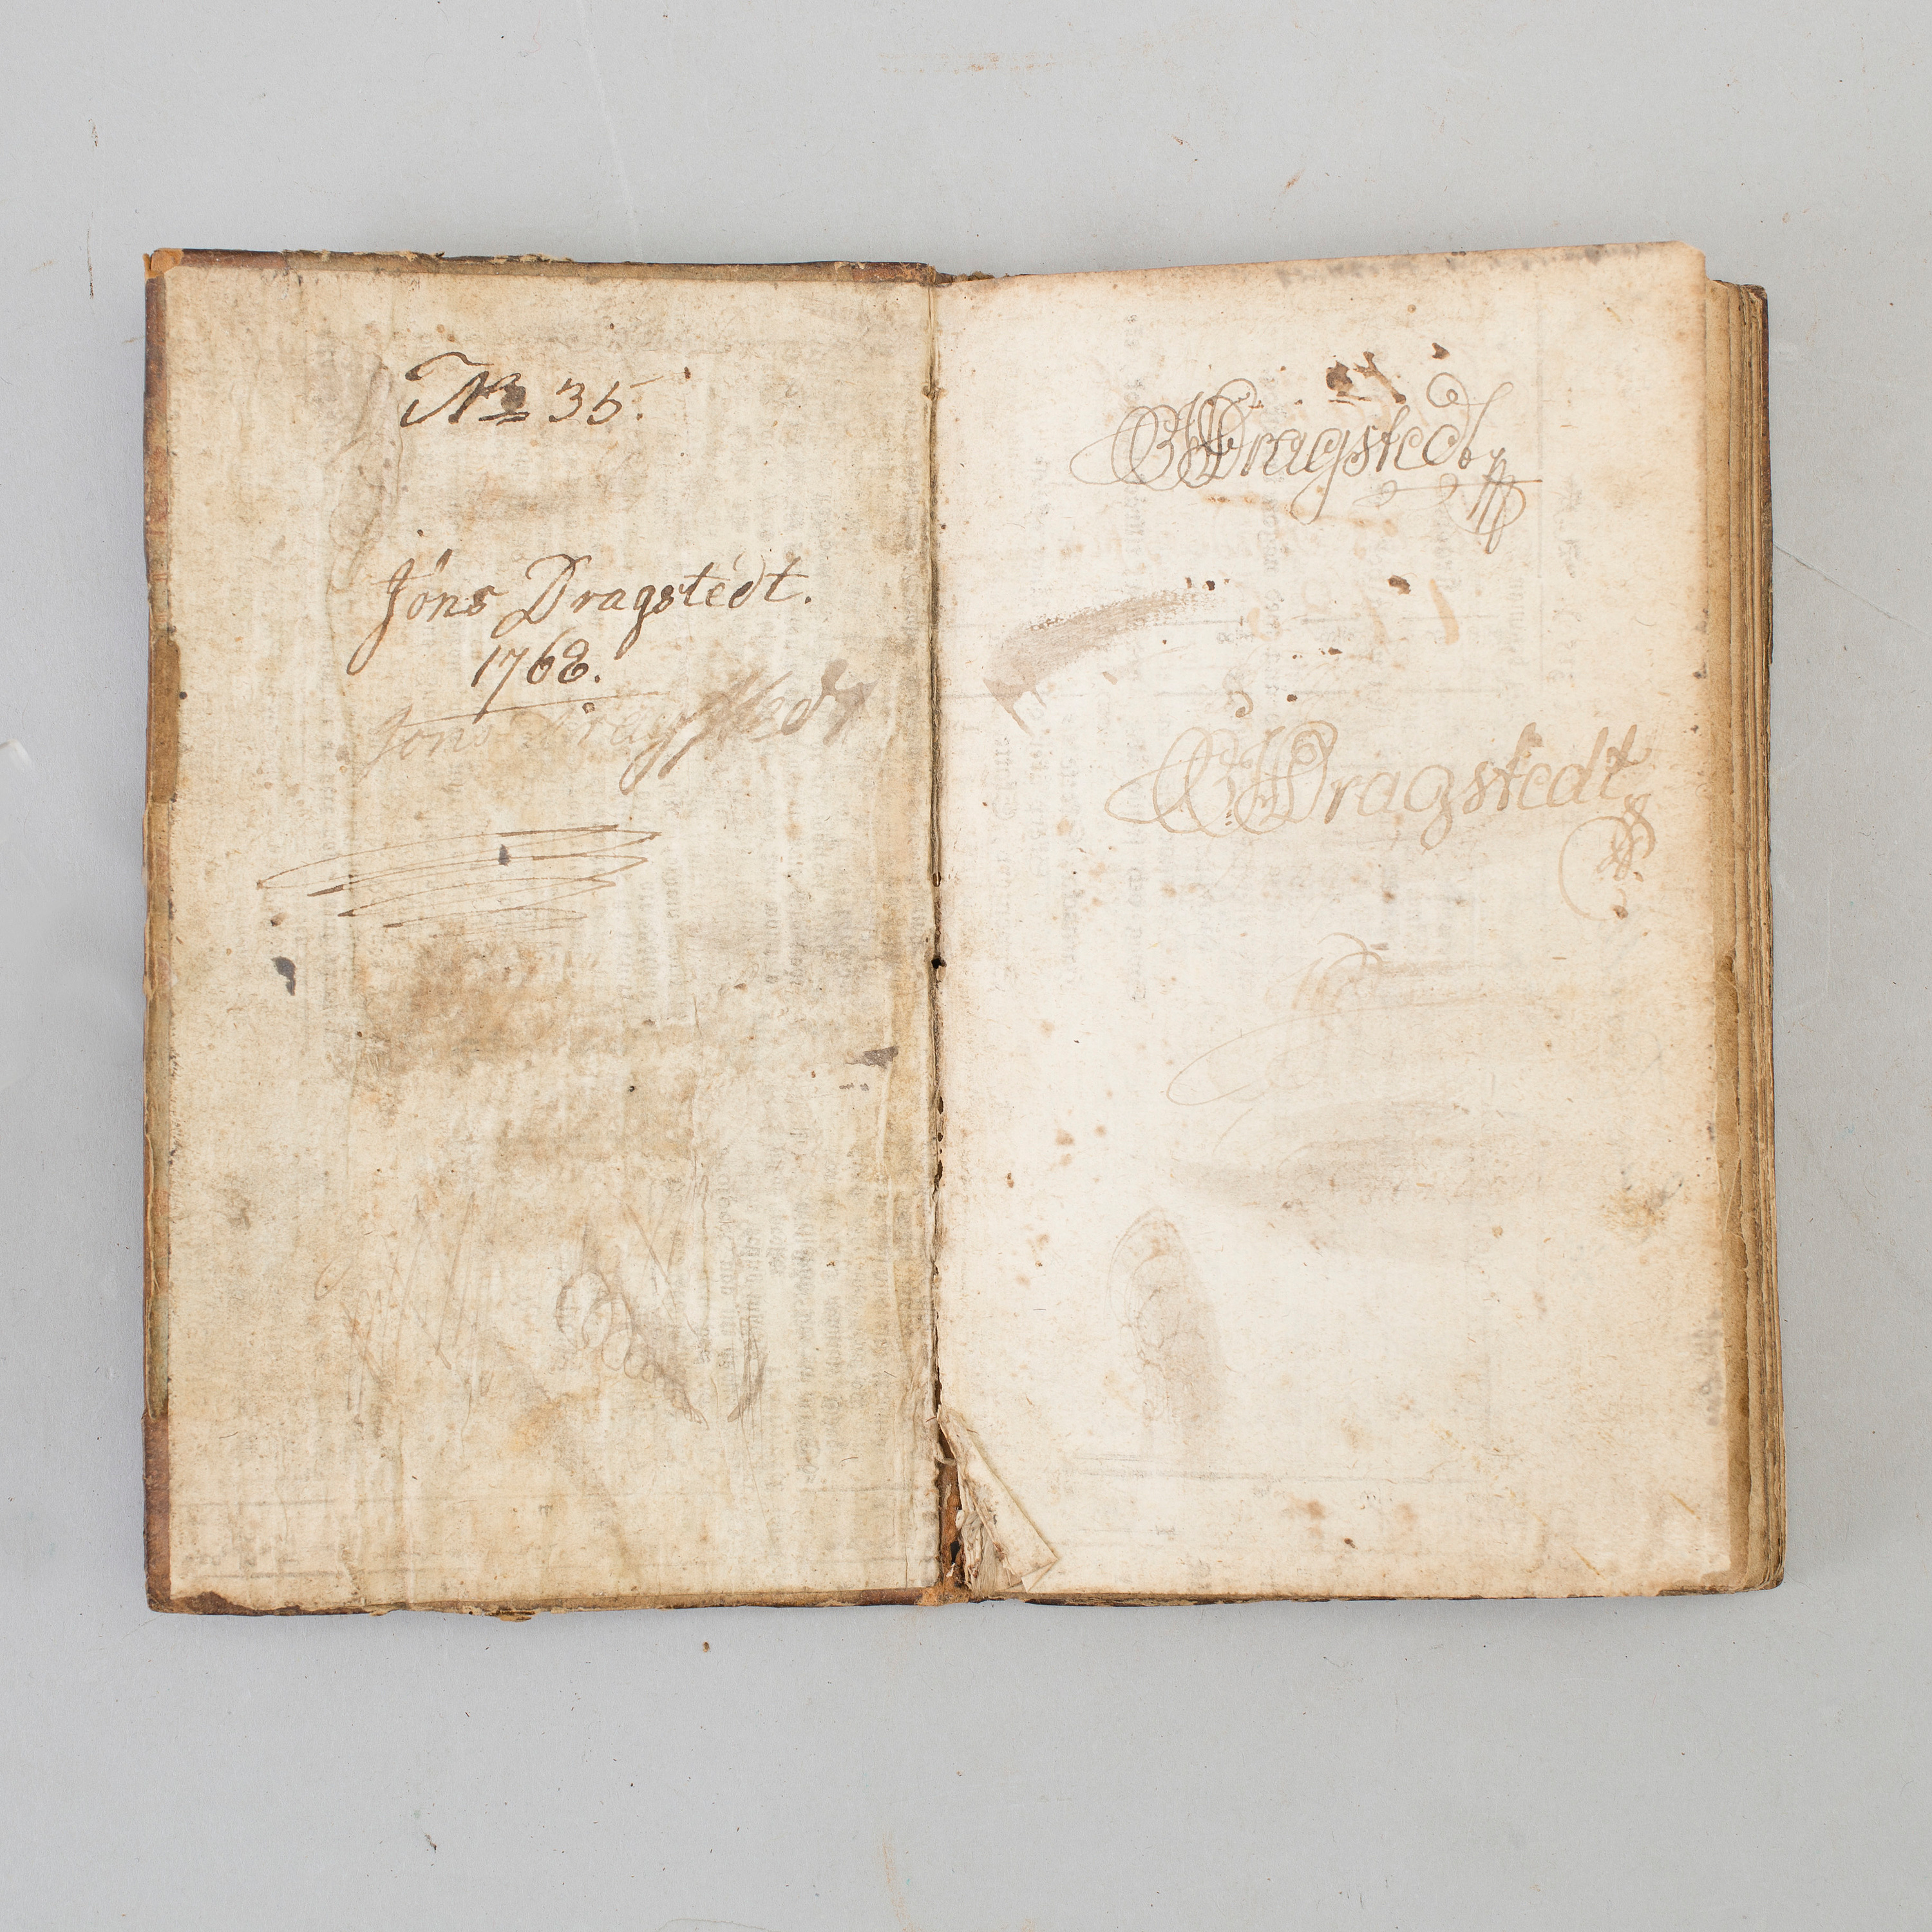 No 35.
Jöns Dragstedt.
1768.
Jöns Dragstedt
Dragstedt
Dragstedt